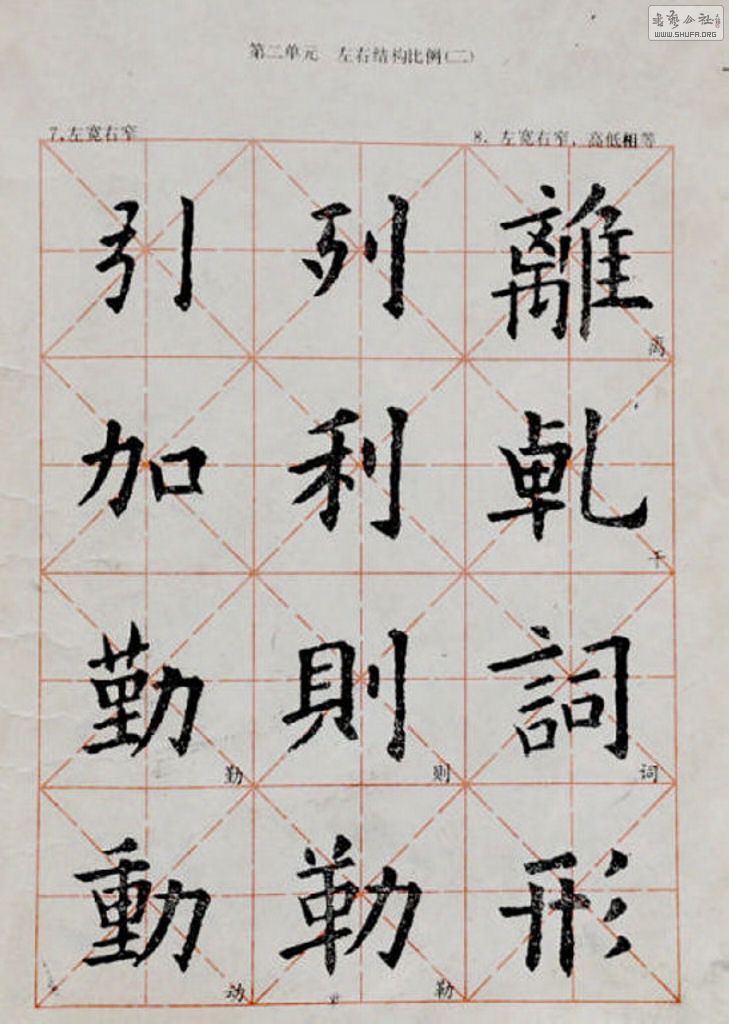 书艺公社
WWW.SHUFA.ORG
第二单元 左右结构比例(二)
7.左宽右窄
8. 左宽右窄，高低相等
引 列 離
离
加 利 乹
干
勤 則 詞
勤 则 词
動 勒 形
动 勒